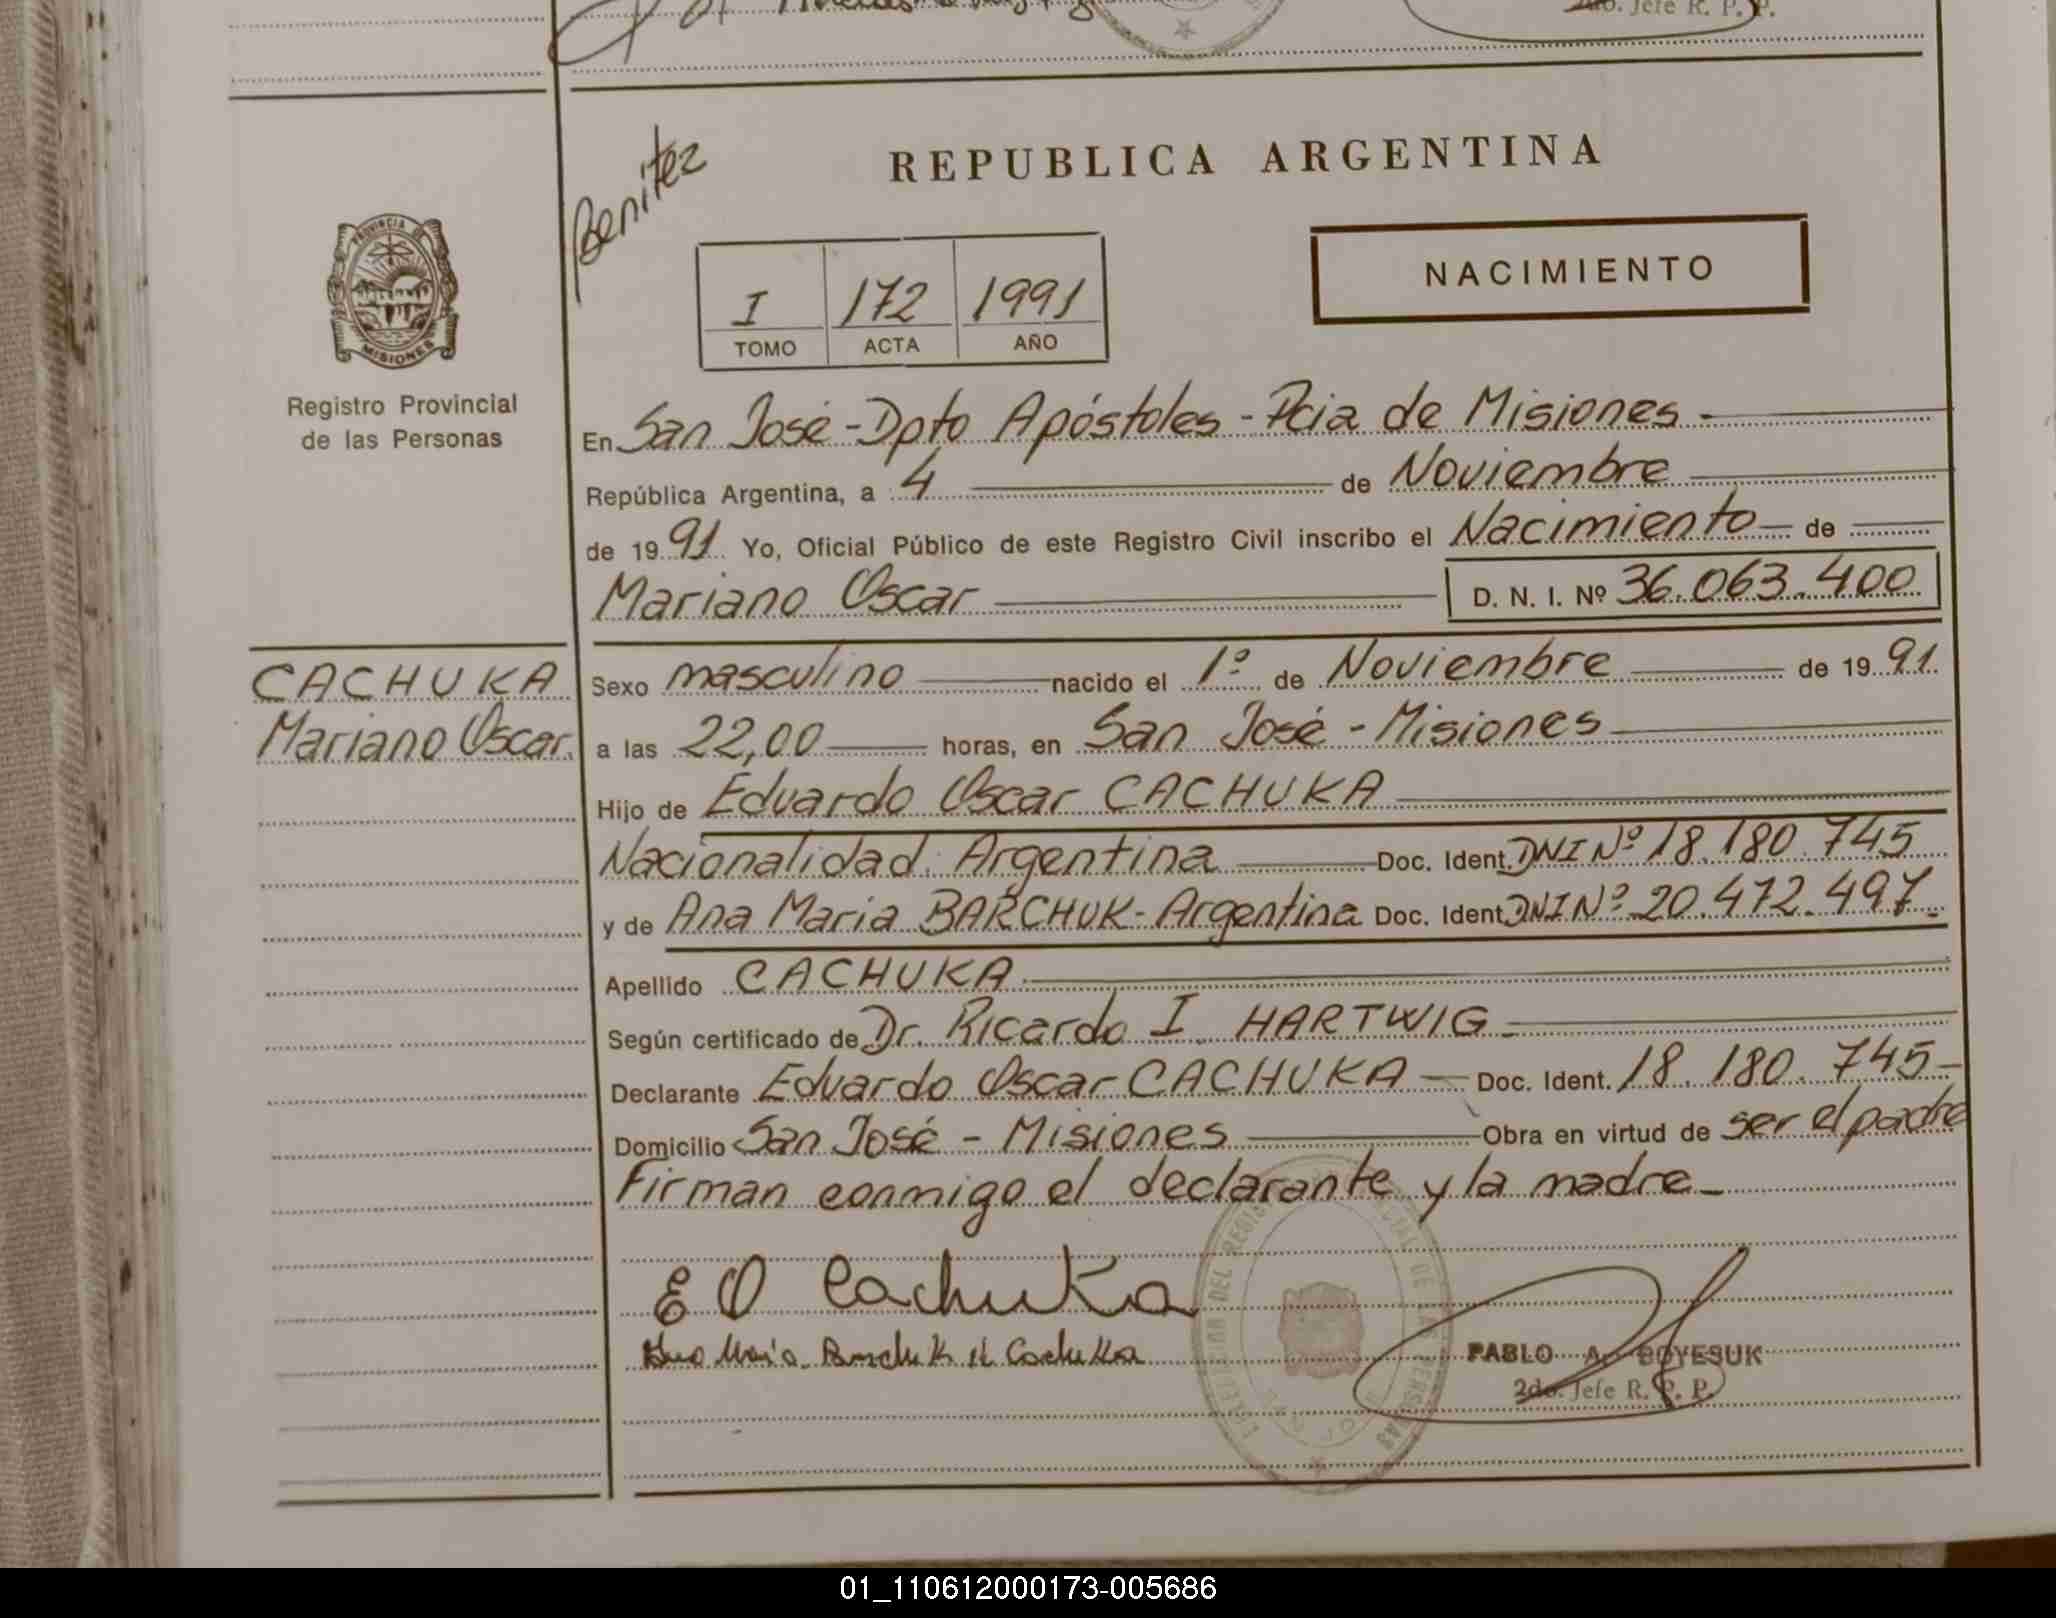 2do. Jefe R. P. P.
Benitez
REPUBLICA ARGENTINA
NACIMIENTO
I 172 1991
TOMO ACTA AÑO
PROVINCIA DE
MISIONES
Registro Provincial
de las Personas
En San José - Dpto Apóstoles - Pcia de Misiones
República Argentina, a 4 de Noviembre
de 1991 Yo, Oficial Público de este Registro Civil inscribo el Nacimiento de
Mariano Oscar D. N. I. Nº 36.063.400
CACHUKA
Mariano Oscar.
Sexo masculino nacido el 1º de Noviembre de 1991.
a las 22,00 horas, en San José - Misiones
Hijo de Eduardo Oscar CACHUKA
Nacionalidad Argentina Doc. Ident. DNI Nº 18.180.745
y de Ana Maria BARCHUK - Argentina Doc. Ident. DNI Nº 20.472.497.
Apellido CACHUKA
Según certificado de Dr. Ricardo I. HARTWIG
Declarante Eduardo Oscar CACHUKA Doc. Ident. 18.180.745-
Domicilio San José - Misiones Obra en virtud de ser el padre
Firman conmigo el declarante y la madre_
E O Cachuka
Ana Maria Barchuk de Cachuka
PABLO A. BOYESUK
2do. Jefe R. P. P.
01_110612000173-005686